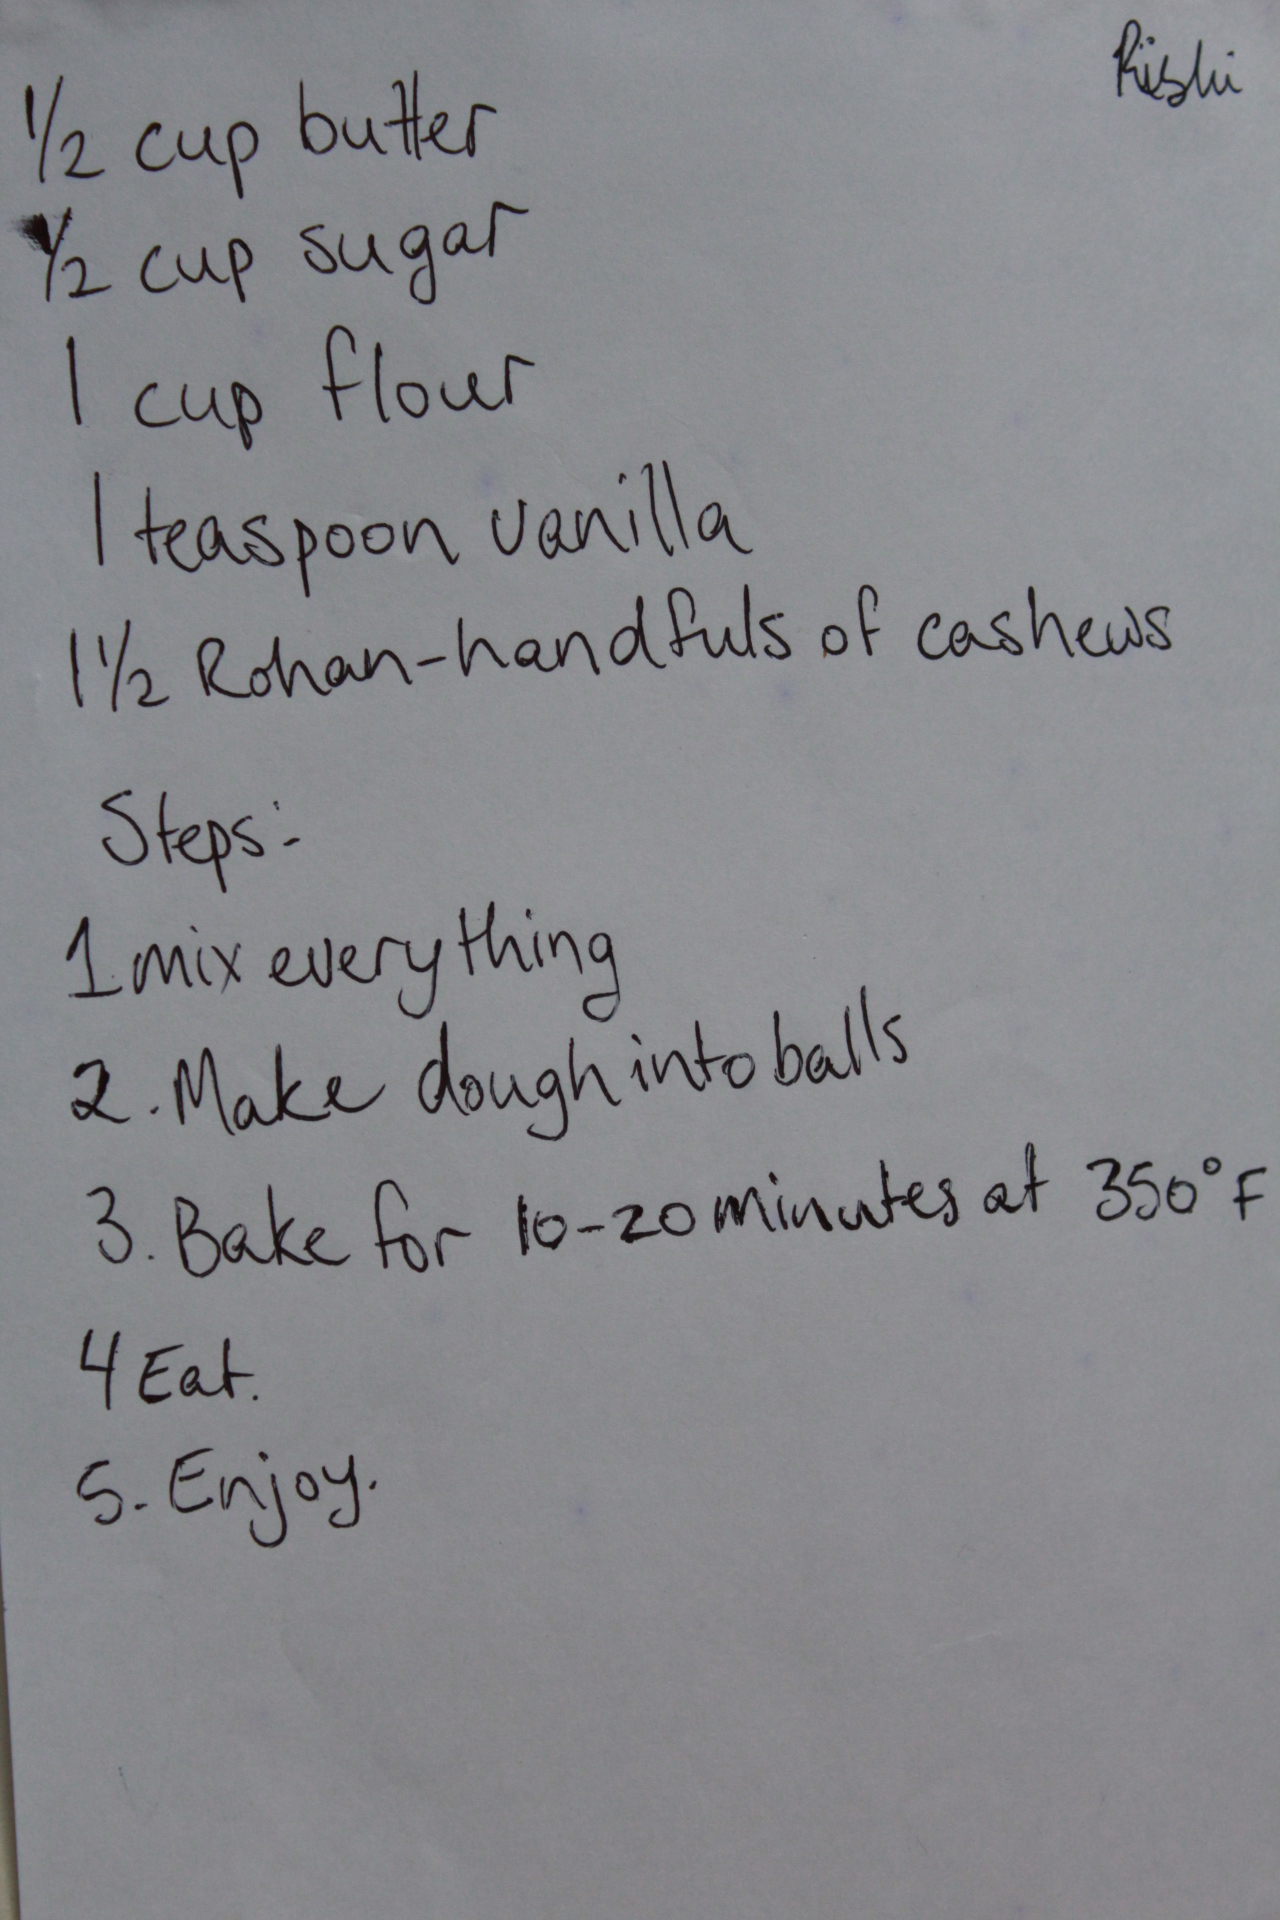 Rishi
1/2 cup butter
1/2 cup sugar
1 cup flour
1 teaspoon vanilla
1 1/2 Rohan-handfuls of cashews
Steps:-
1 mix everything
2. Make dough into balls
3. Bake for 10-20 minutes at 350°F
4 Eat.
5. Enjoy.